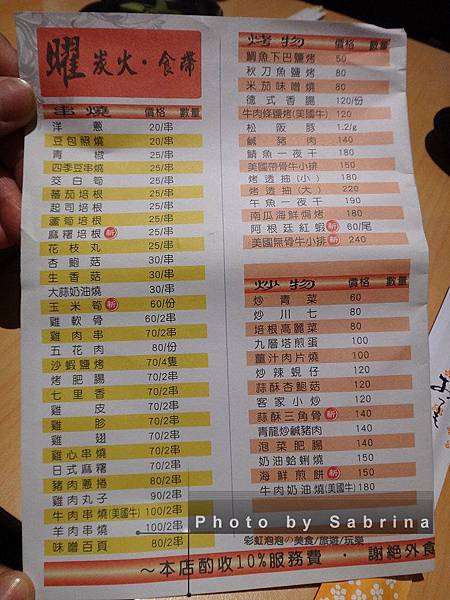 曜 炭火·食帶
串燒 價格 數量
洋蔥 20/串
豆包照燒 20/串
青椒 25/串
四季豆串燒 25/串
茭白筍 25/串
蕃茄培根 25/串
起司培根 25/串
蘆筍培根 25/串
麻糬培根 新 25/串
花枝丸 25/串
杏鮑菇 30/串
生香菇 30/串
大蒜奶油燒 30/串
玉米筍 新 60/份
雞軟骨 60/2串
雞肉串 70/2串
五花肉 80/份
沙蝦鹽烤 70/4隻
烤肥腸 70/2串
七里香 70/2串
雞皮 70/2串
雞胗 70/2串
雞翅 70/2串
雞心串燒 70/2串
日式麻糬 70/2串
豬肉蔥捲 80/2串
雞肉丸子 90/2串
牛肉串燒(美國牛) 100/2串
羊肉串燒 100/2串
味噌百頁 80/2串
烤物 價格 數量
鯛魚下巴鹽烤 50
秋刀魚鹽烤 80
米茄味噌燒 80
德式香腸 120/份
牛肉條鹽烤(美國牛) 120
松阪豚 1.2/g
鹹豬肉 140
鯖魚一夜干 180
美國帶骨牛小排 150
烤透抽(小) 180
烤透抽(大) 220
午魚一夜干 190
南瓜海鮮焗烤 180
阿根廷紅蝦 新 60/尾
美國無骨牛小排 新 240
炒物 價格 數量
炒青菜 60
炒川七 80
培根高麗菜 80
九層塔煎蛋 100
薑汁肉片燒 100
炒辣蜆仔 120
蒜酥杏鮑菇 120
客家小炒 120
蒜酥三角骨 新 140
青龍炒鹹豬肉 140
泡菜肥腸 140
奶油蛤蜊燒 150
海鮮煎餅 新 150
牛肉奶油燒(美國牛) 180
Photo by Sabrina
彩虹泡泡の美食/旅遊/玩樂
～本店酌收10%服務費 · 謝絕外食